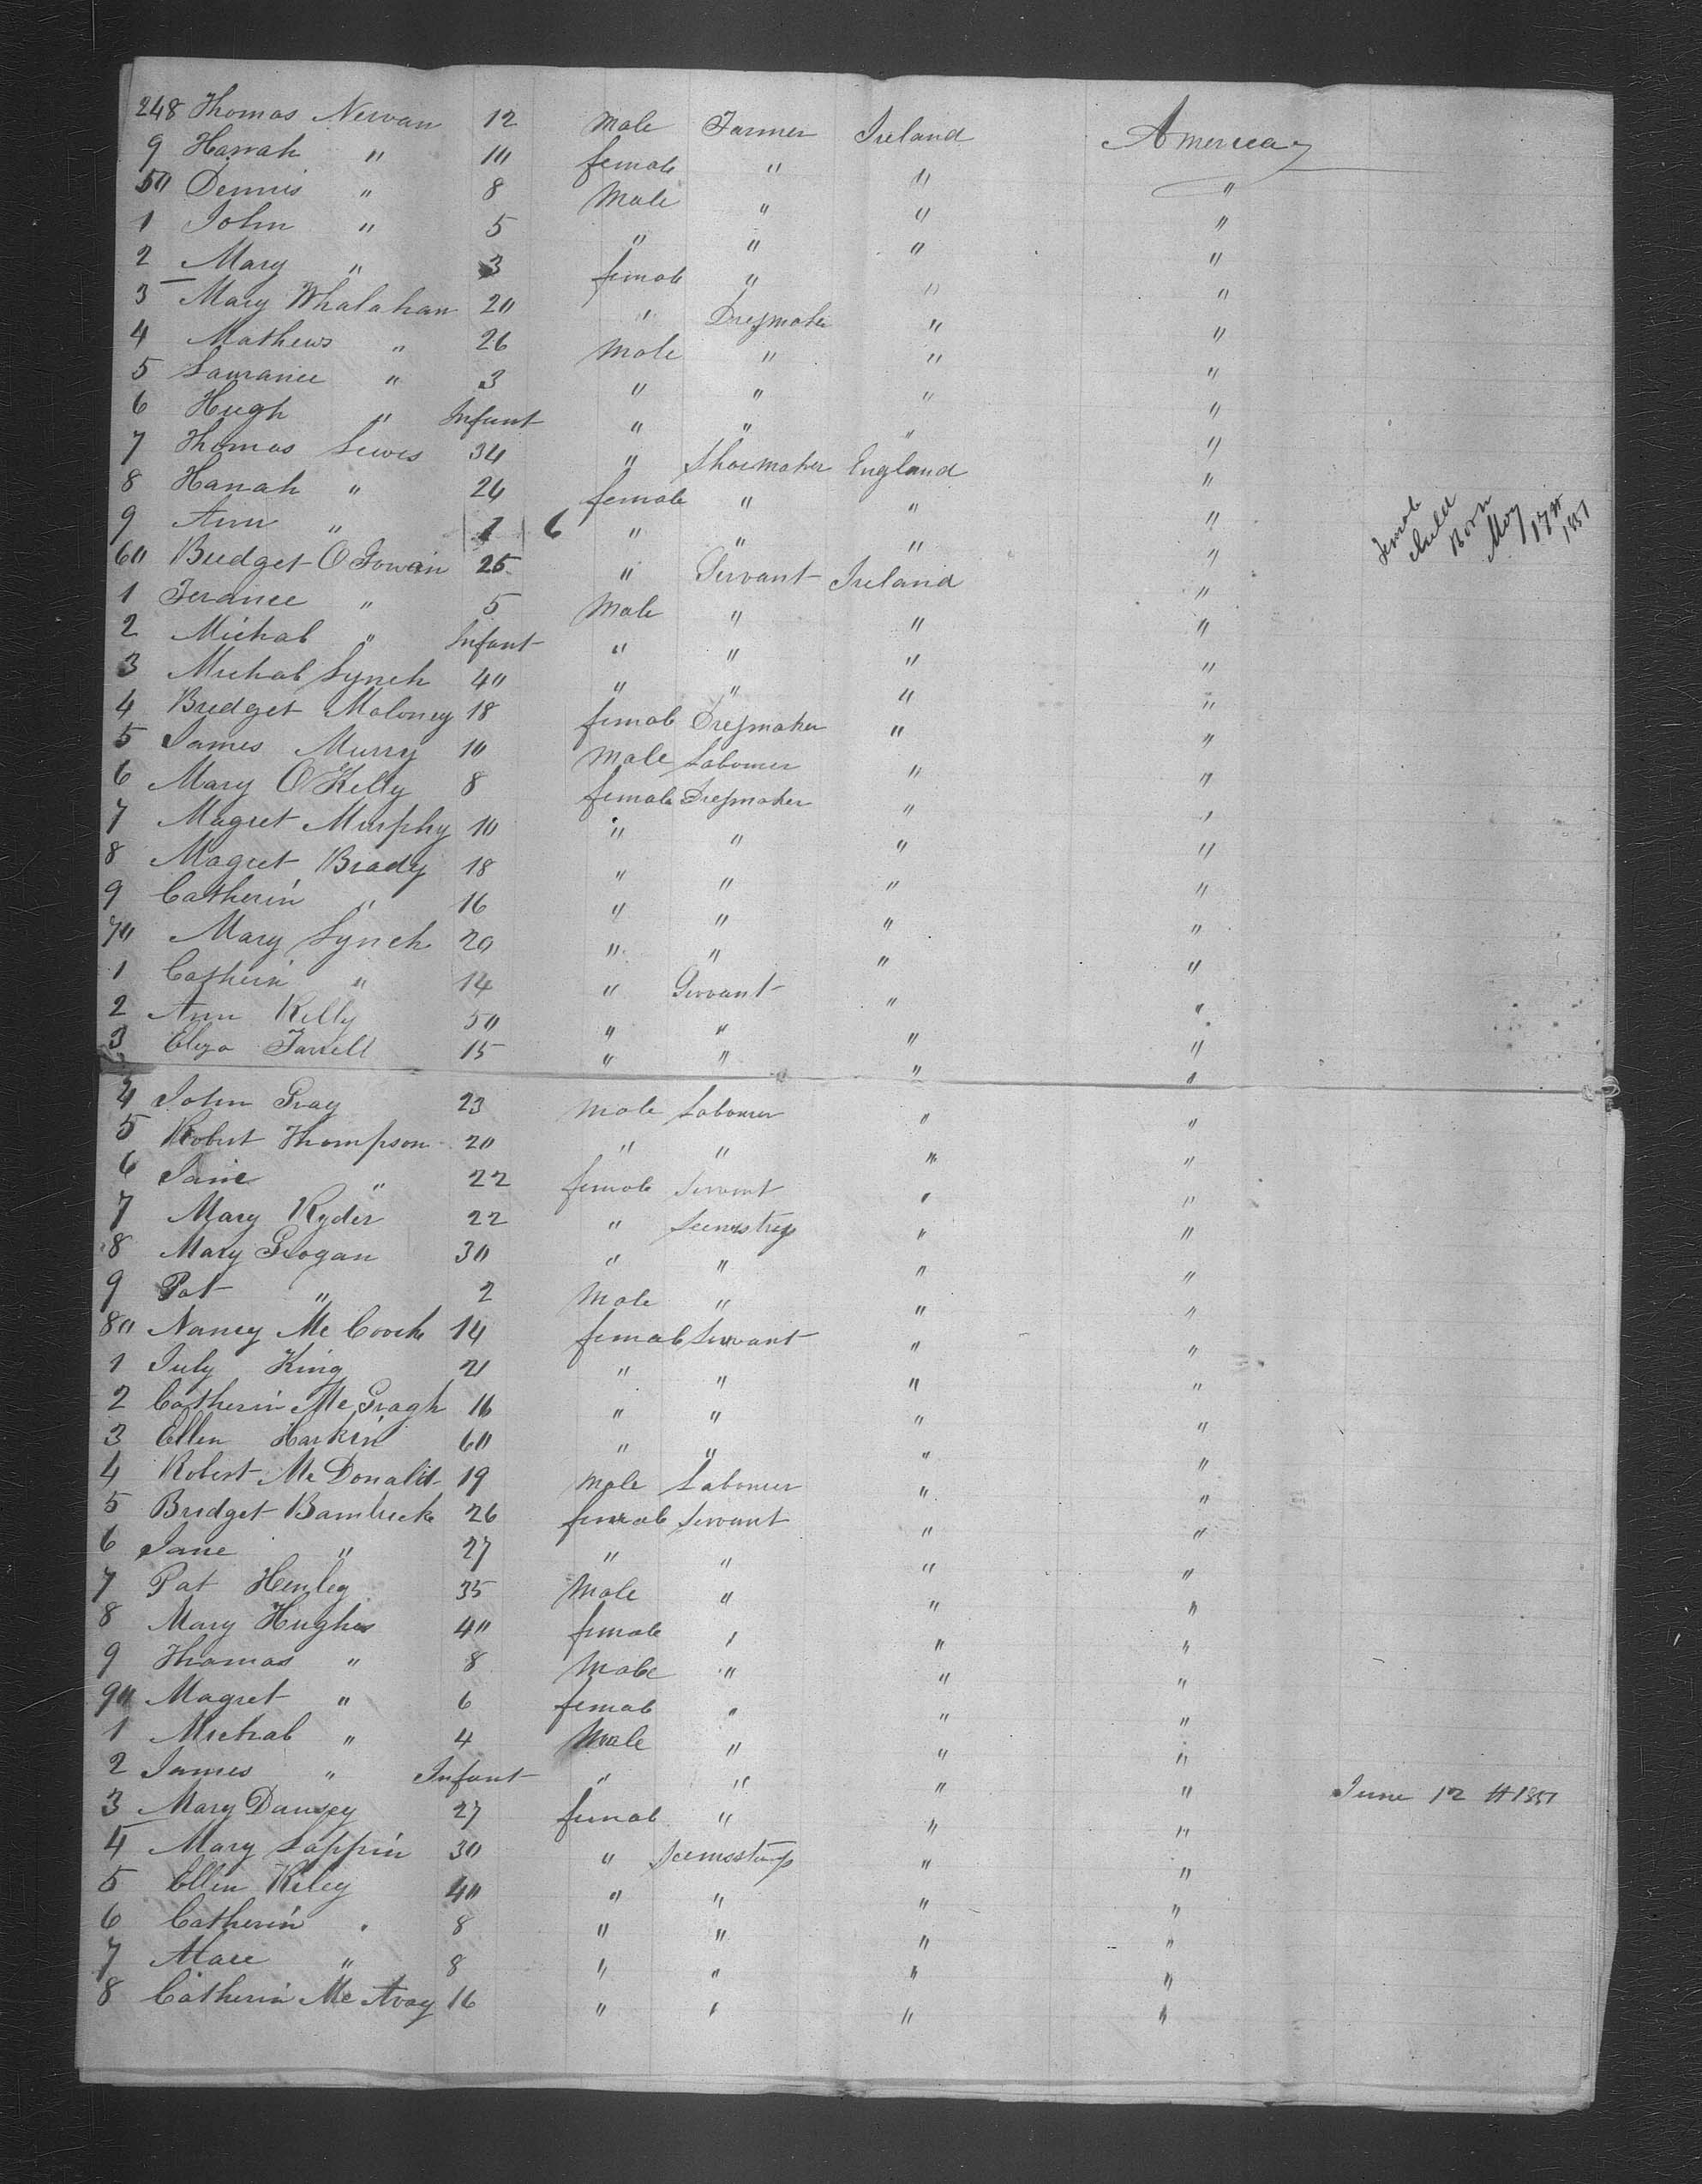 248 Thomas Nervan 12 Male Farmer Ireland America
9 Hanah " 10 female " " "
50 Dennis " 8 Male " " "
1 John " 5 " " " "
2 Mary " 3 female " " "
3 Mary Whalahan 20 " Dresmaker " "
4 Mathews " 26 Male " " "
5 Laurance " 3 " " " "
6 Hugh " Infant " " " "
7 Thomas Lewis 34 " Shoemaker England "
8 Hanah " 24 female " " "
9 Ann " 1 6 " " " " female child Born May 17th 1851
60 Bridget O 25 " Servant Ireland "
1 Ferance " 5 Male " " "
2 Michal " Infant " " " "
3 Michal Lynch 40 " " " "
4 Bridget Maloney 18 female Dresmaker " "
5 James Murry 10 Male Labourer " "
6 Mary O Kelly 8 female Dresmaker " "
7 Magret Murphy 10 " " " "
8 Magret Brady 18 " " " "
9 Catherin " 16 " " " "
70 Mary Lynch 20 " " " "
1 Catherin " 14 " Servant " "
2 Ann Kelly 50 " " " "
3 Eliza Farrell 15 " " " "
4 John Gray 23 Male Labourer " "
5 Robert Thompson 20 " " " "
6 Jane " 22 female Servant " "
7 Mary Ryder 22 " Seemstress " "
8 Mary Grogan 30 " " " "
9 Pat " 2 Male " " "
80 Nancy Mc 14 female Servant " "
1 July King 21 " " " "
2 Catherin Mc Gragh 16 " " " "
3 Ellen Harkin 60 " " " "
4 Robert Mc Donald 19 Male Labourer " "
5 Bridget 26 female Servant " "
6 Jane " 27 " " " "
7 Pat Henley 35 Male " " "
8 Mary Hughes 40 female " " "
9 Thomas " 8 Male " " "
90 Magret " 6 female " " "
1 Michal " 4 Male " " "
2 James " Infant " " " " June 12 th 1851
3 Mary 27 female " " "
4 Mary Lappin 30 " Seemsstress " "
5 Ellen Riley 40 " " " "
6 Catherin " 8 " " " "
7 " 8 " " " "
8 Catherin Mc Avay 16 " " " "